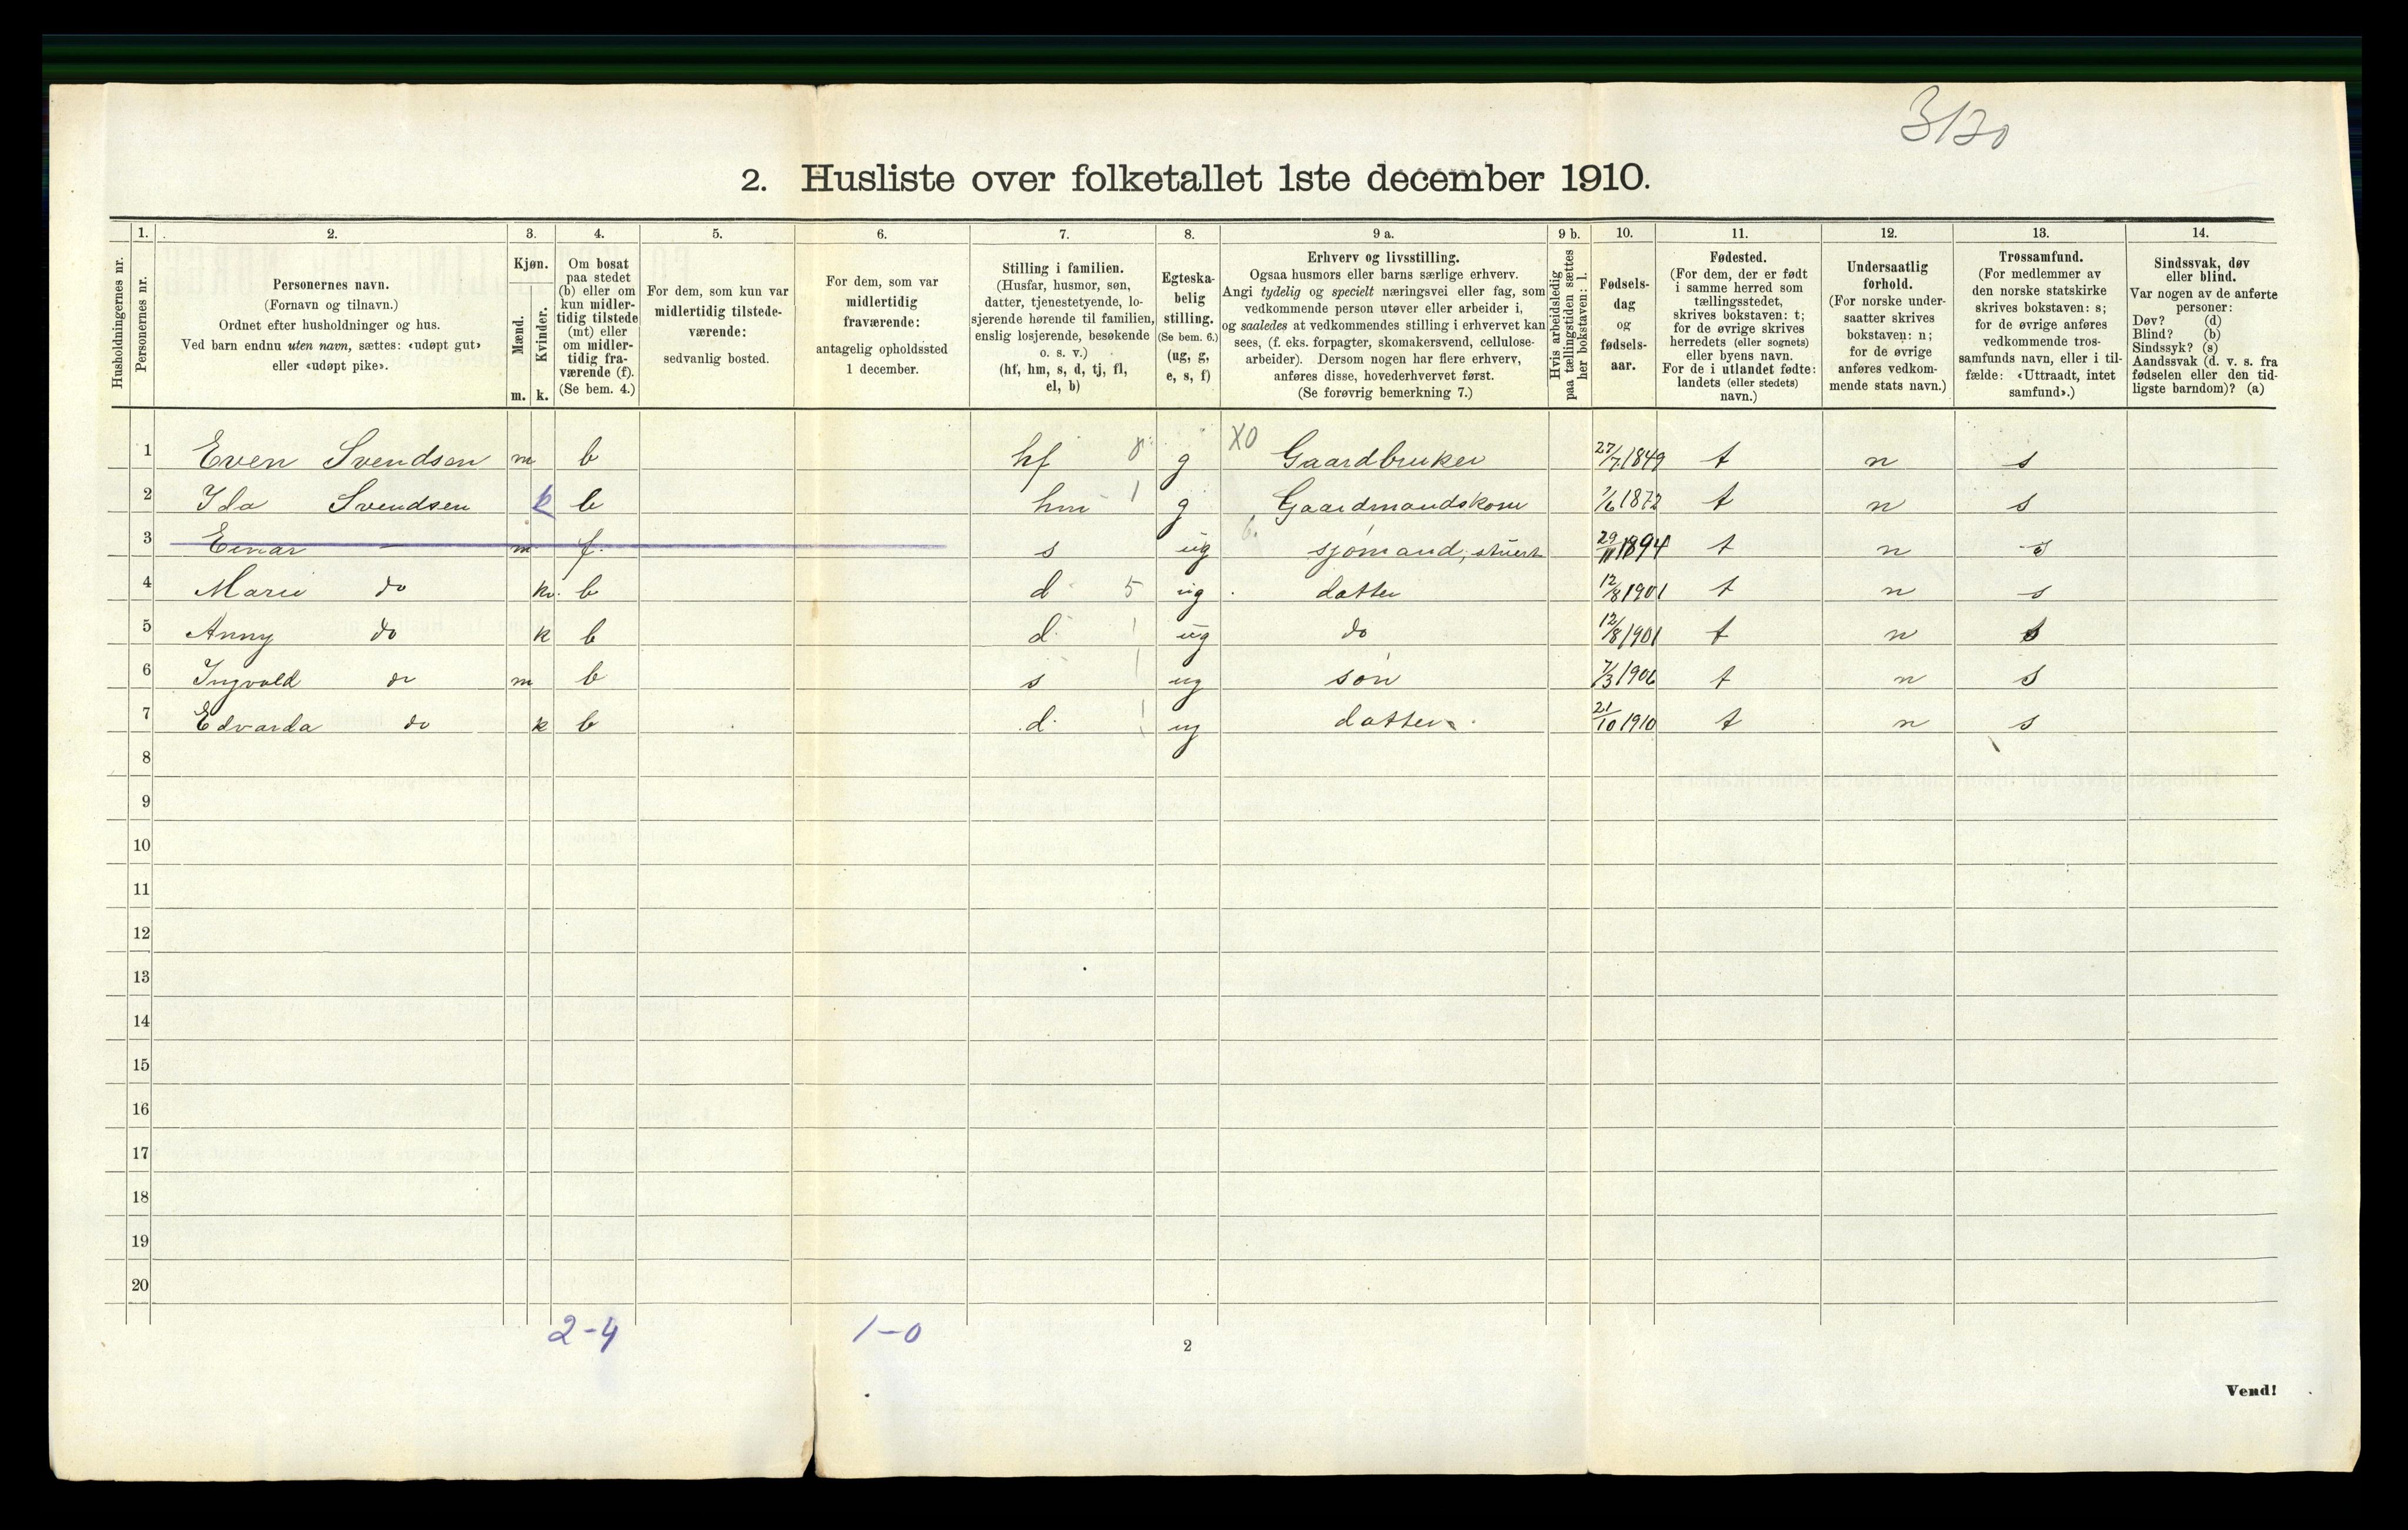 3120
2. Husliste over folketallet 1ste december 1910.
Husholdningernes nr.
1.
Personernes nr.
2.
Personernes navn.
(Fornavn og tilnavn.)
Ordnet efter husholdninger og hus.
Ved barn endnu uten navn, sættes: «udøpt gut»
eller «udøpt pike».
3.
Kjøn.
Mænd.
Kvinder.
m. k.
4.
Om bosat
paa stedet
(b) eller om
kun midler-
tidig tilstede
(mt) eller
om midler-
tidig fra-
værende (f).
(Se bem. 4.)
5.
For dem, som kun var
midlertidig tilstede-
værende:
sedvanlig bosted.
6.
For dem, som var
midlertidig
fraværende:
antagelig opholdssted
1 december.
7.
Stilling i familien.
(Husfar, husmor, søn,
datter, tjenestetyende, lo-
sjerende hørende til familien,
enslig losjerende, besøkende
o. s. v.)
(hf, hm, s, d, tj, fl,
el, b)
8.
Egteska-
belig
stilling.
(Se bem. 6.)
(ug, g,
e, s, f)
9 a.
Erhverv og livsstilling.
Ogsaa husmors eller barns særlige erhverv.
Angi tydelig og specielt næringsvei eller fag, som
vedkommende person utøver eller arbeider i,
og saaledes at vedkommendes stilling i erhvervet kan
sees, (f. eks. forpagter, skomakersvend, cellulose-
arbeider). Dersom nogen har flere erhverv,
anføres disse, hovederhvervet først.
(Se forøvrig bemerkning 7.)
9 b.
Hvis arbeidsledig
paa tællingstiden sættes
her bokstaven: l.
10.
Fødsels-
dag
og
fødsels-
aar.
11.
Fødested.
(For dem, der er født
i samme herred som
tællingsstedet,
skrives bokstaven: t;
for de øvrige skrives
herredets (eller sognets)
eller byens navn.
For de i utlandet fødte:
landets (eller stedets)
navn.)
12.
Undersaatlig
forhold.
(For norske under-
saatter skrives
bokstaven: n;
for de øvrige
anføres vedkom-
mende stats navn.)
13.
Trossamfund.
(For medlemmer av
den norske statskirke
skrives bokstaven: s;
for de øvrige anføres
vedkommende tros-
samfunds navn, eller i til-
fælde: «Uttraadt, intet
samfund».)
14.
Sindssvak, døv
eller blind.
Var nogen av de anførte
personer:
Døv? (d)
Blind? (b)
Sindssyk? (s)
Aandssvak (d. v. s. fra
fødselen eller den tid-
ligste barndom)? (a)
1 Even Svendsen m b hf 8 g X0 Gaardbruker 27/7 1849 t n s
2 Ida Svendsen k b hm 1 g Gaardmandskone 1/6 1872 t n s
3 Einar — m f. s ug 6. sjømand, stuert 29/11 1894 t n s
4 Marie do kv. b d 5 ug datter 12/8 1901 t n s
5 Anny do k b d 1 ug do 12/8 1901 t n s
6 Ingvald do m b s 1 ug søn 7/3 1906 t n s
7 Edvarda do k b d. 1 ug datter 21/10 1910 t n s
8
9
10
11
12
13
14
15
16
17
18
19
20
2-4 1-0
2
Vend!